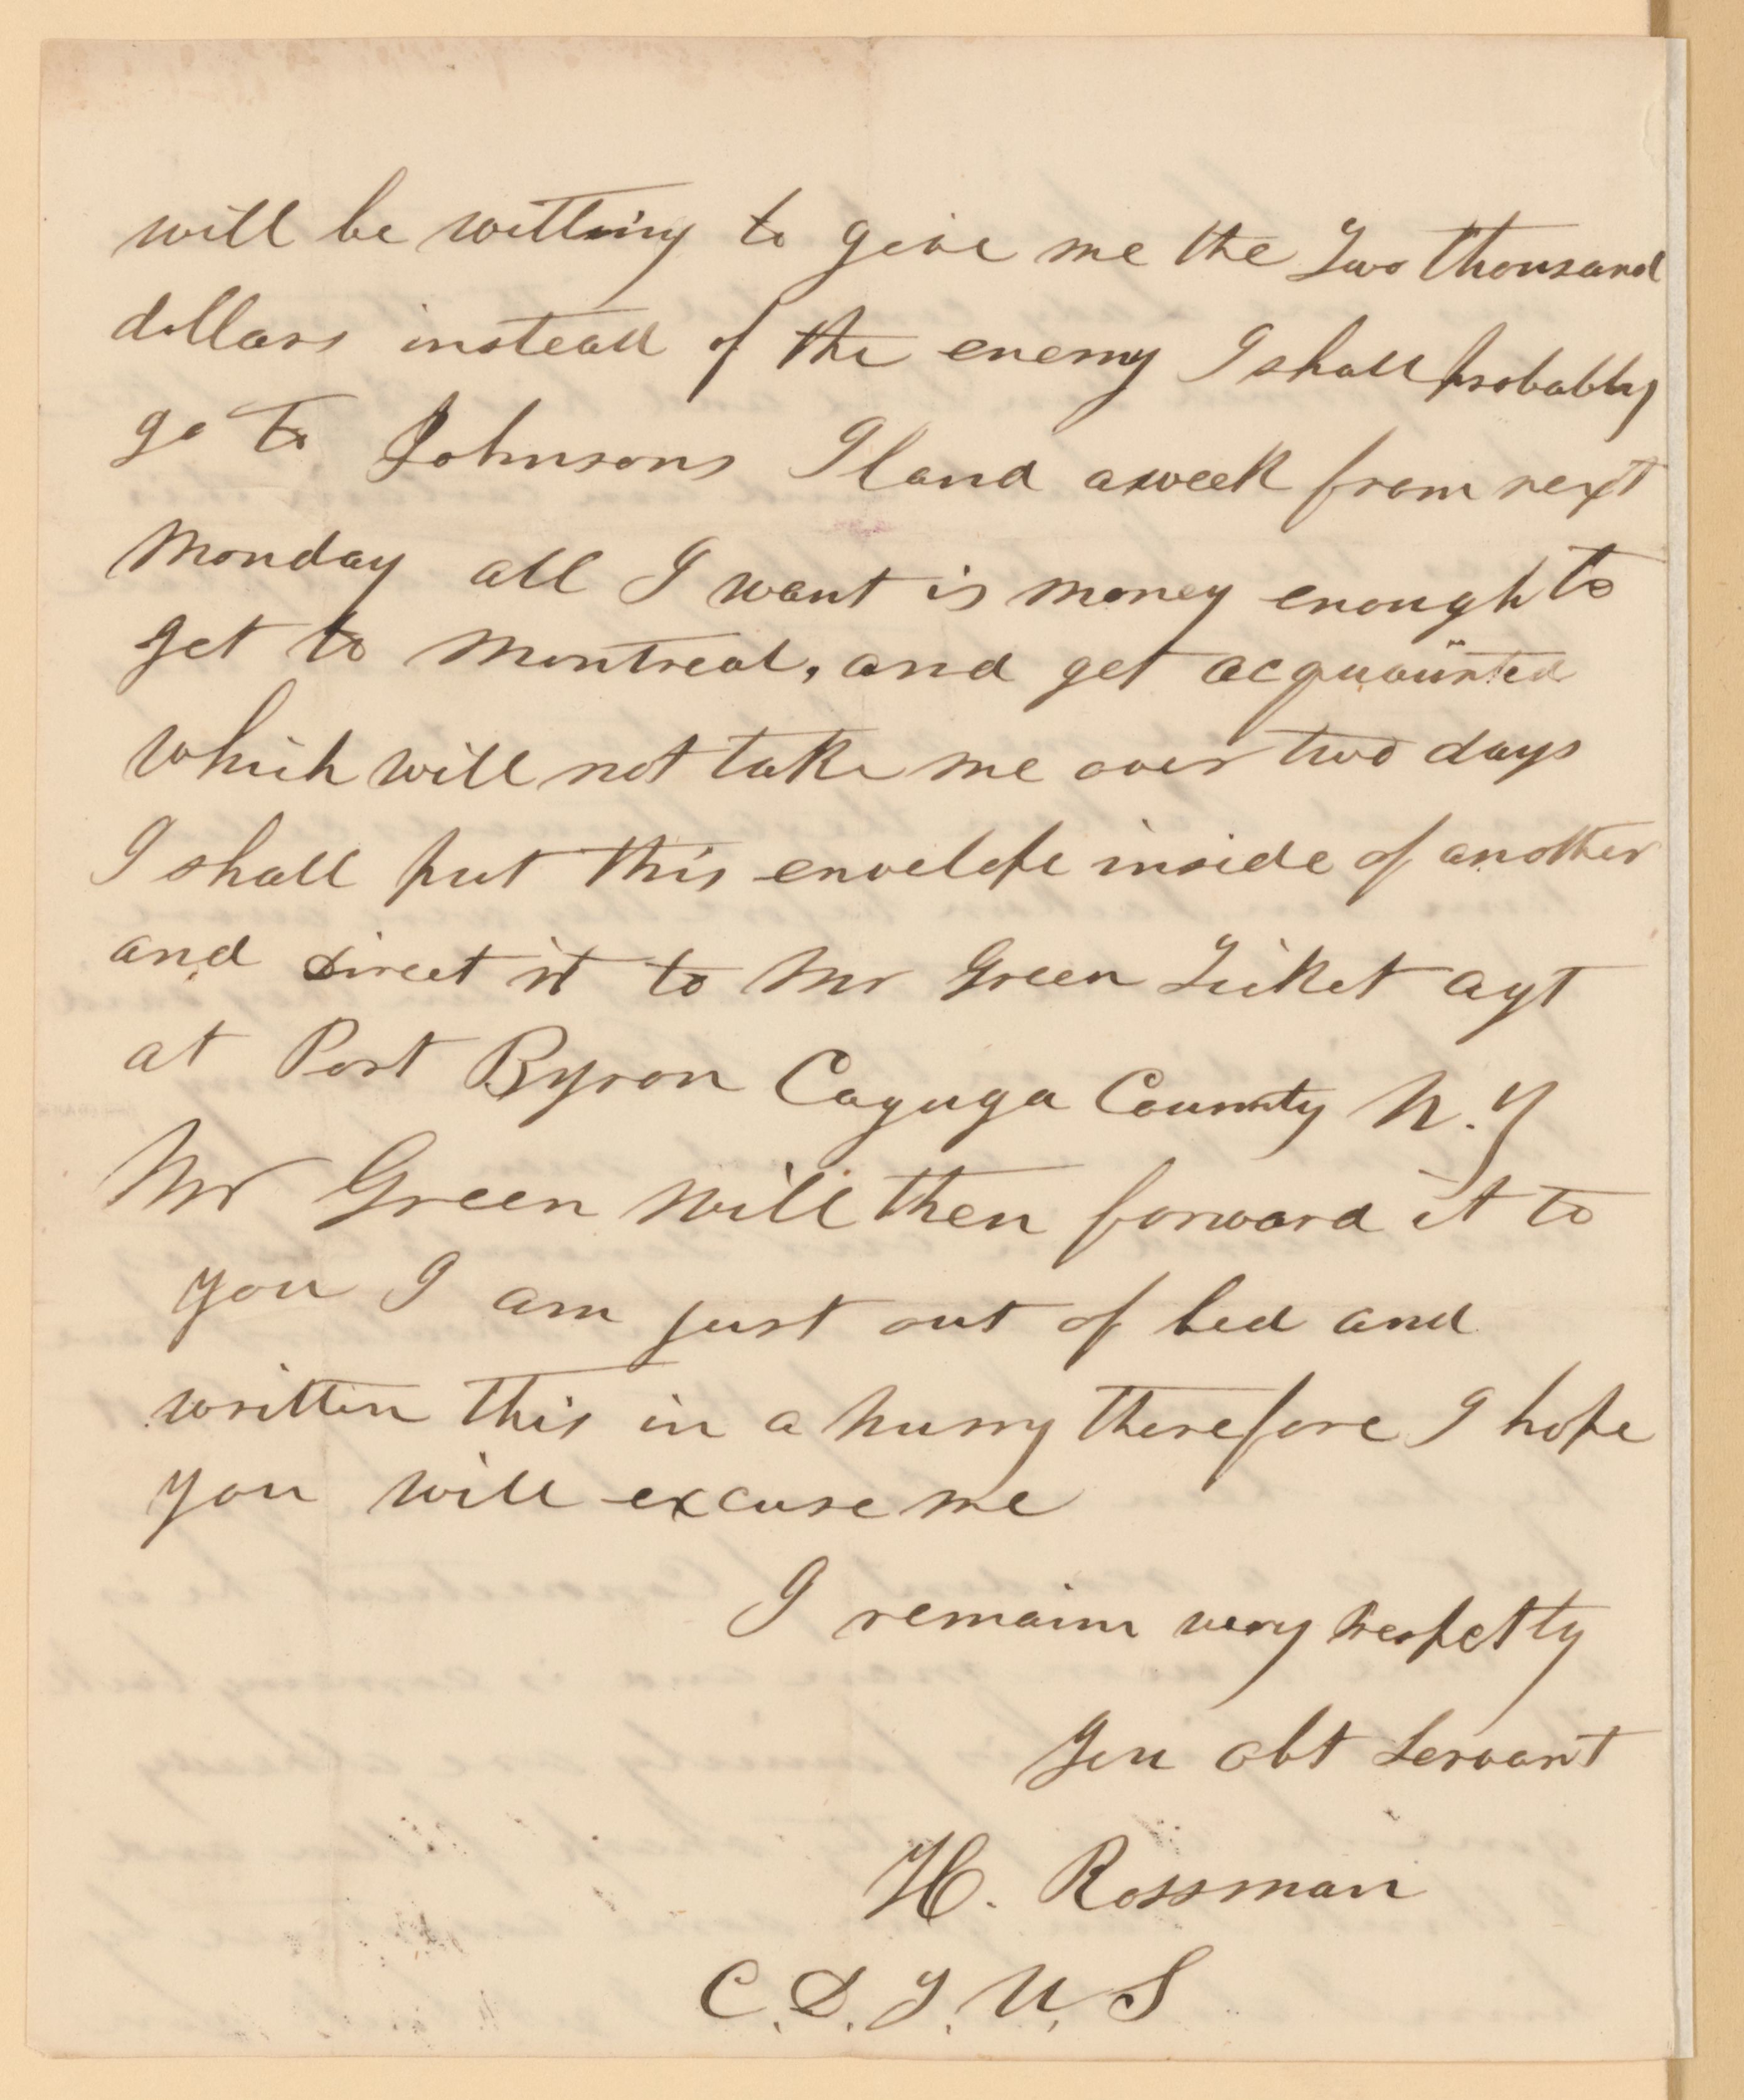 will be willing to give me the Two thousand
dollars instead of the enemy I shall probably
go to Johnsons Iland a week from next
Monday all I want is money enough to
get to Montreal, and get acquainted
which will not take me over two days
I shall put this envelope inside of another
and direct it to Mr Green Ticket agt
at Port Byron Cayuga County N.Y
Mr Green Will then forward it to
you I am just out of bed and
written this in a hurry therefore I hope
you will excuse me
I remain very Respctly
You obt Servant
H. Rossman
C. D. J. U. S